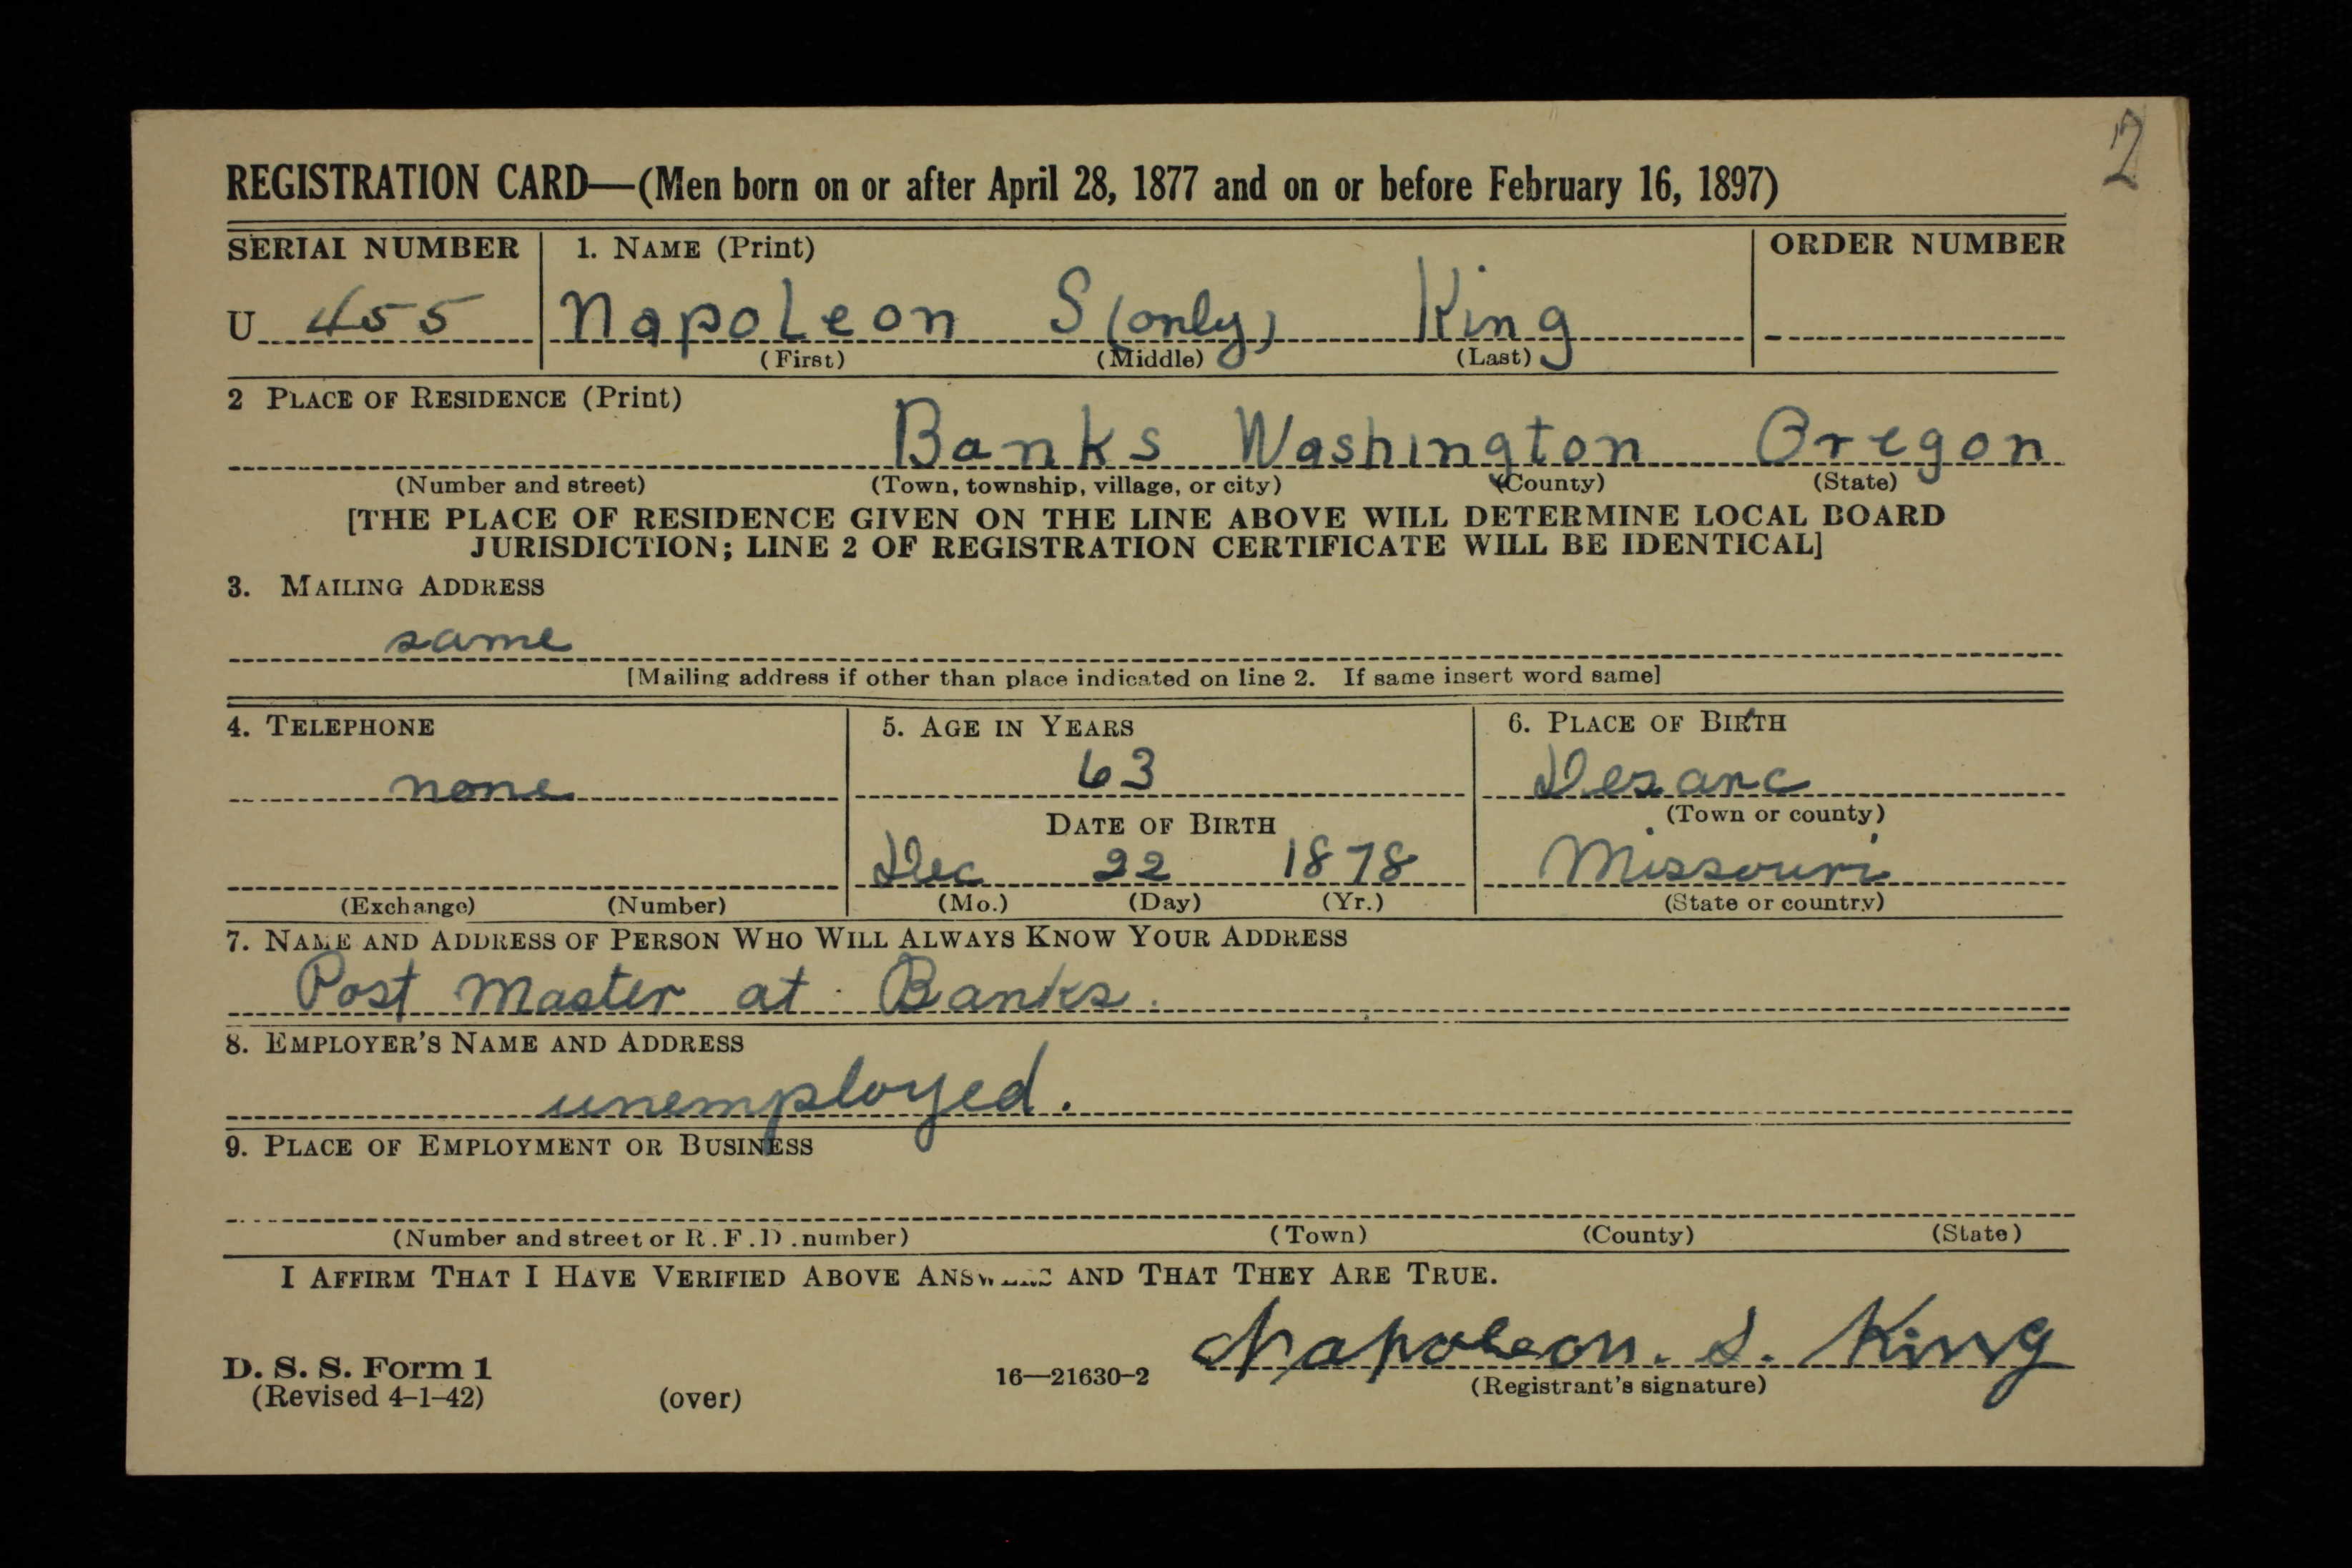 2
REGISTRATION CARD—(Men born on or after April 28, 1877 and on or before February 16, 1897)
SERIAL NUMBER 1. NAME (Print) ORDER NUMBER
U 455 Napoleon S (only) King
(First) (Middle) (Last)
2 PLACE OF RESIDENCE (Print)
Banks Washington Oregon
(Number and street) (Town, township, village, or city) (County) (State)
[THE PLACE OF RESIDENCE GIVEN ON THE LINE ABOVE WILL DETERMINE LOCAL BOARD
JURISDICTION; LINE 2 OF REGISTRATION CERTIFICATE WILL BE IDENTICAL]
3. MAILING ADDRESS
same
[Mailing address if other than place indicated on line 2. If same insert word same]
4. TELEPHONE 5. AGE IN YEARS 6. PLACE OF BIRTH
none 63 Desarc
(Town or county)
DATE OF BIRTH
Dec 22 1878 Missouri
(Exchange) (Number) (Mo.) (Day) (Yr.) (State or country)
7. NAME AND ADDRESS OF PERSON WHO WILL ALWAYS KNOW YOUR ADDRESS
Post Master at Banks.
8. EMPLOYER'S NAME AND ADDRESS
unemployed.
9. PLACE OF EMPLOYMENT OR BUSINESS
(Number and street or R.F.D. number) (Town) (County) (State)
I AFFIRM THAT I HAVE VERIFIED ABOVE ANSWERS AND THAT THEY ARE TRUE.
Napoleon. S. King
D. S. S. Form 1 16—21630-2 (Registrant's signature)
(Revised 4-1-42) (over)